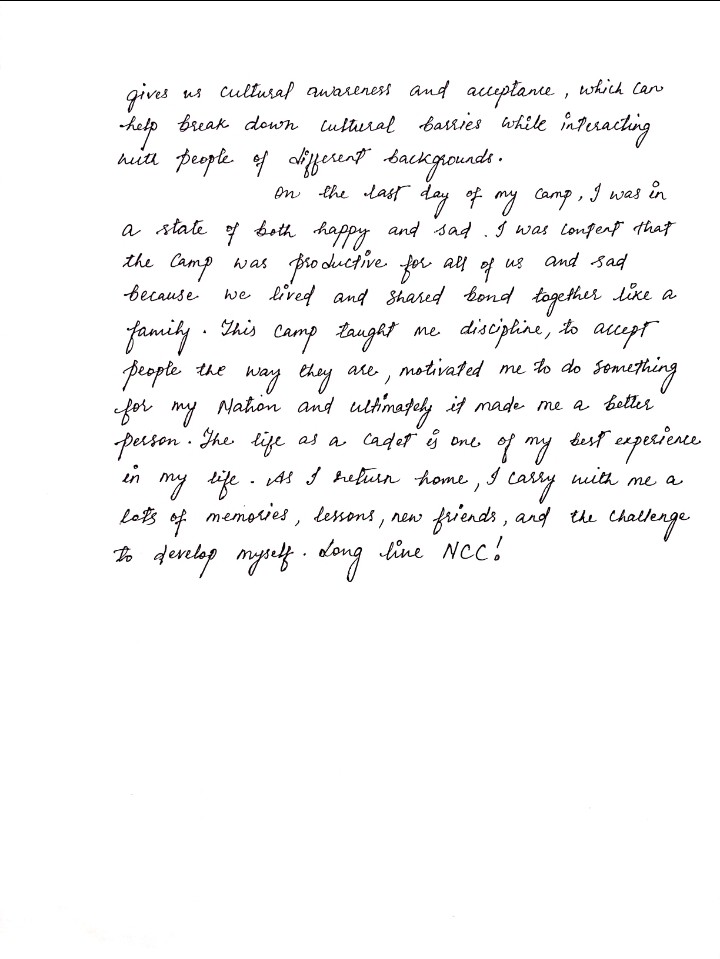 gives us cultural awareness and acceptance, which can
help break down cultural barries while interacting
with people of different backgrounds.
On the last day of my camp, I was in
a state of both happy and sad. I was content that
the camp was productive for all of us and sad
because we lived and shared bond together like a
family. This camp taught me discipline, to accept
people the way they are, motivated me to do something
for my Nation and ultimately it made me a better
person. The life as a cadet is one of my best experience
in my life. As I return home, I carry with me a
lots of memories, lessons, new friends, and the challenge
to develop myself. Long live NCC!